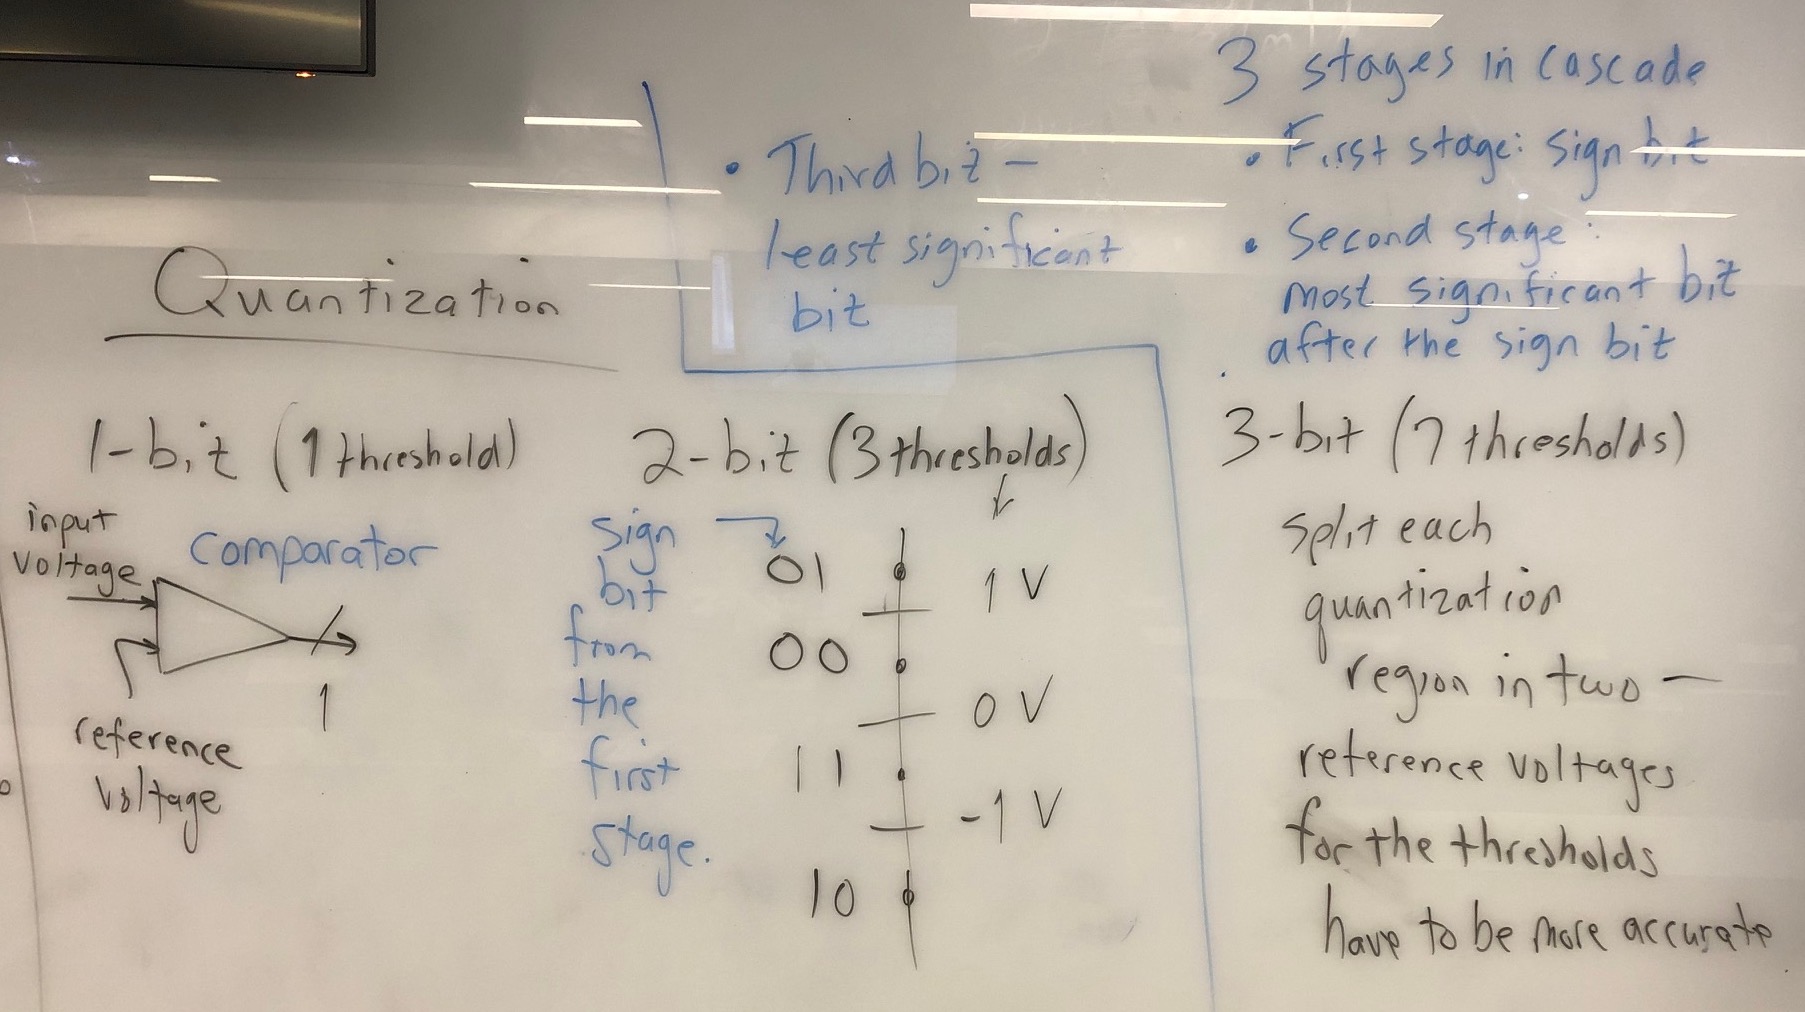 Quantization
1-bit (1 threshold)
input
voltage
comparator
1
reference
voltage
• Third bit –
least significant
bit
2-bit (3 thresholds)
sign
bit
from
the
first
stage.
01
00
11
10
1 V
0 V
-1 V
3 stages in cascade
• First stage: sign bit
• Second stage:
most significant bit
after the sign bit
3-bit (7 thresholds)
split each
quantization
region in two –
reference voltages
for the thresholds
have to be more accurate